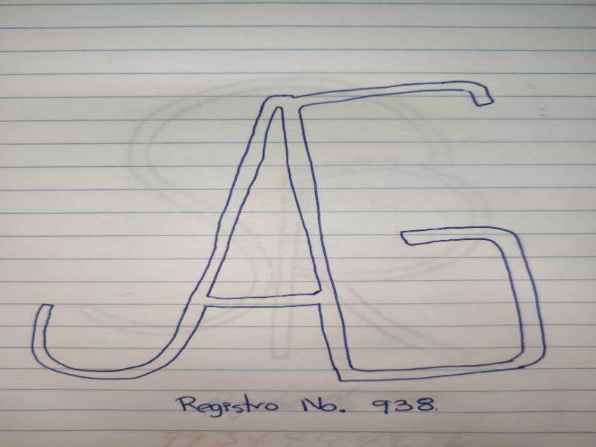 JAG
Registro No. 938.